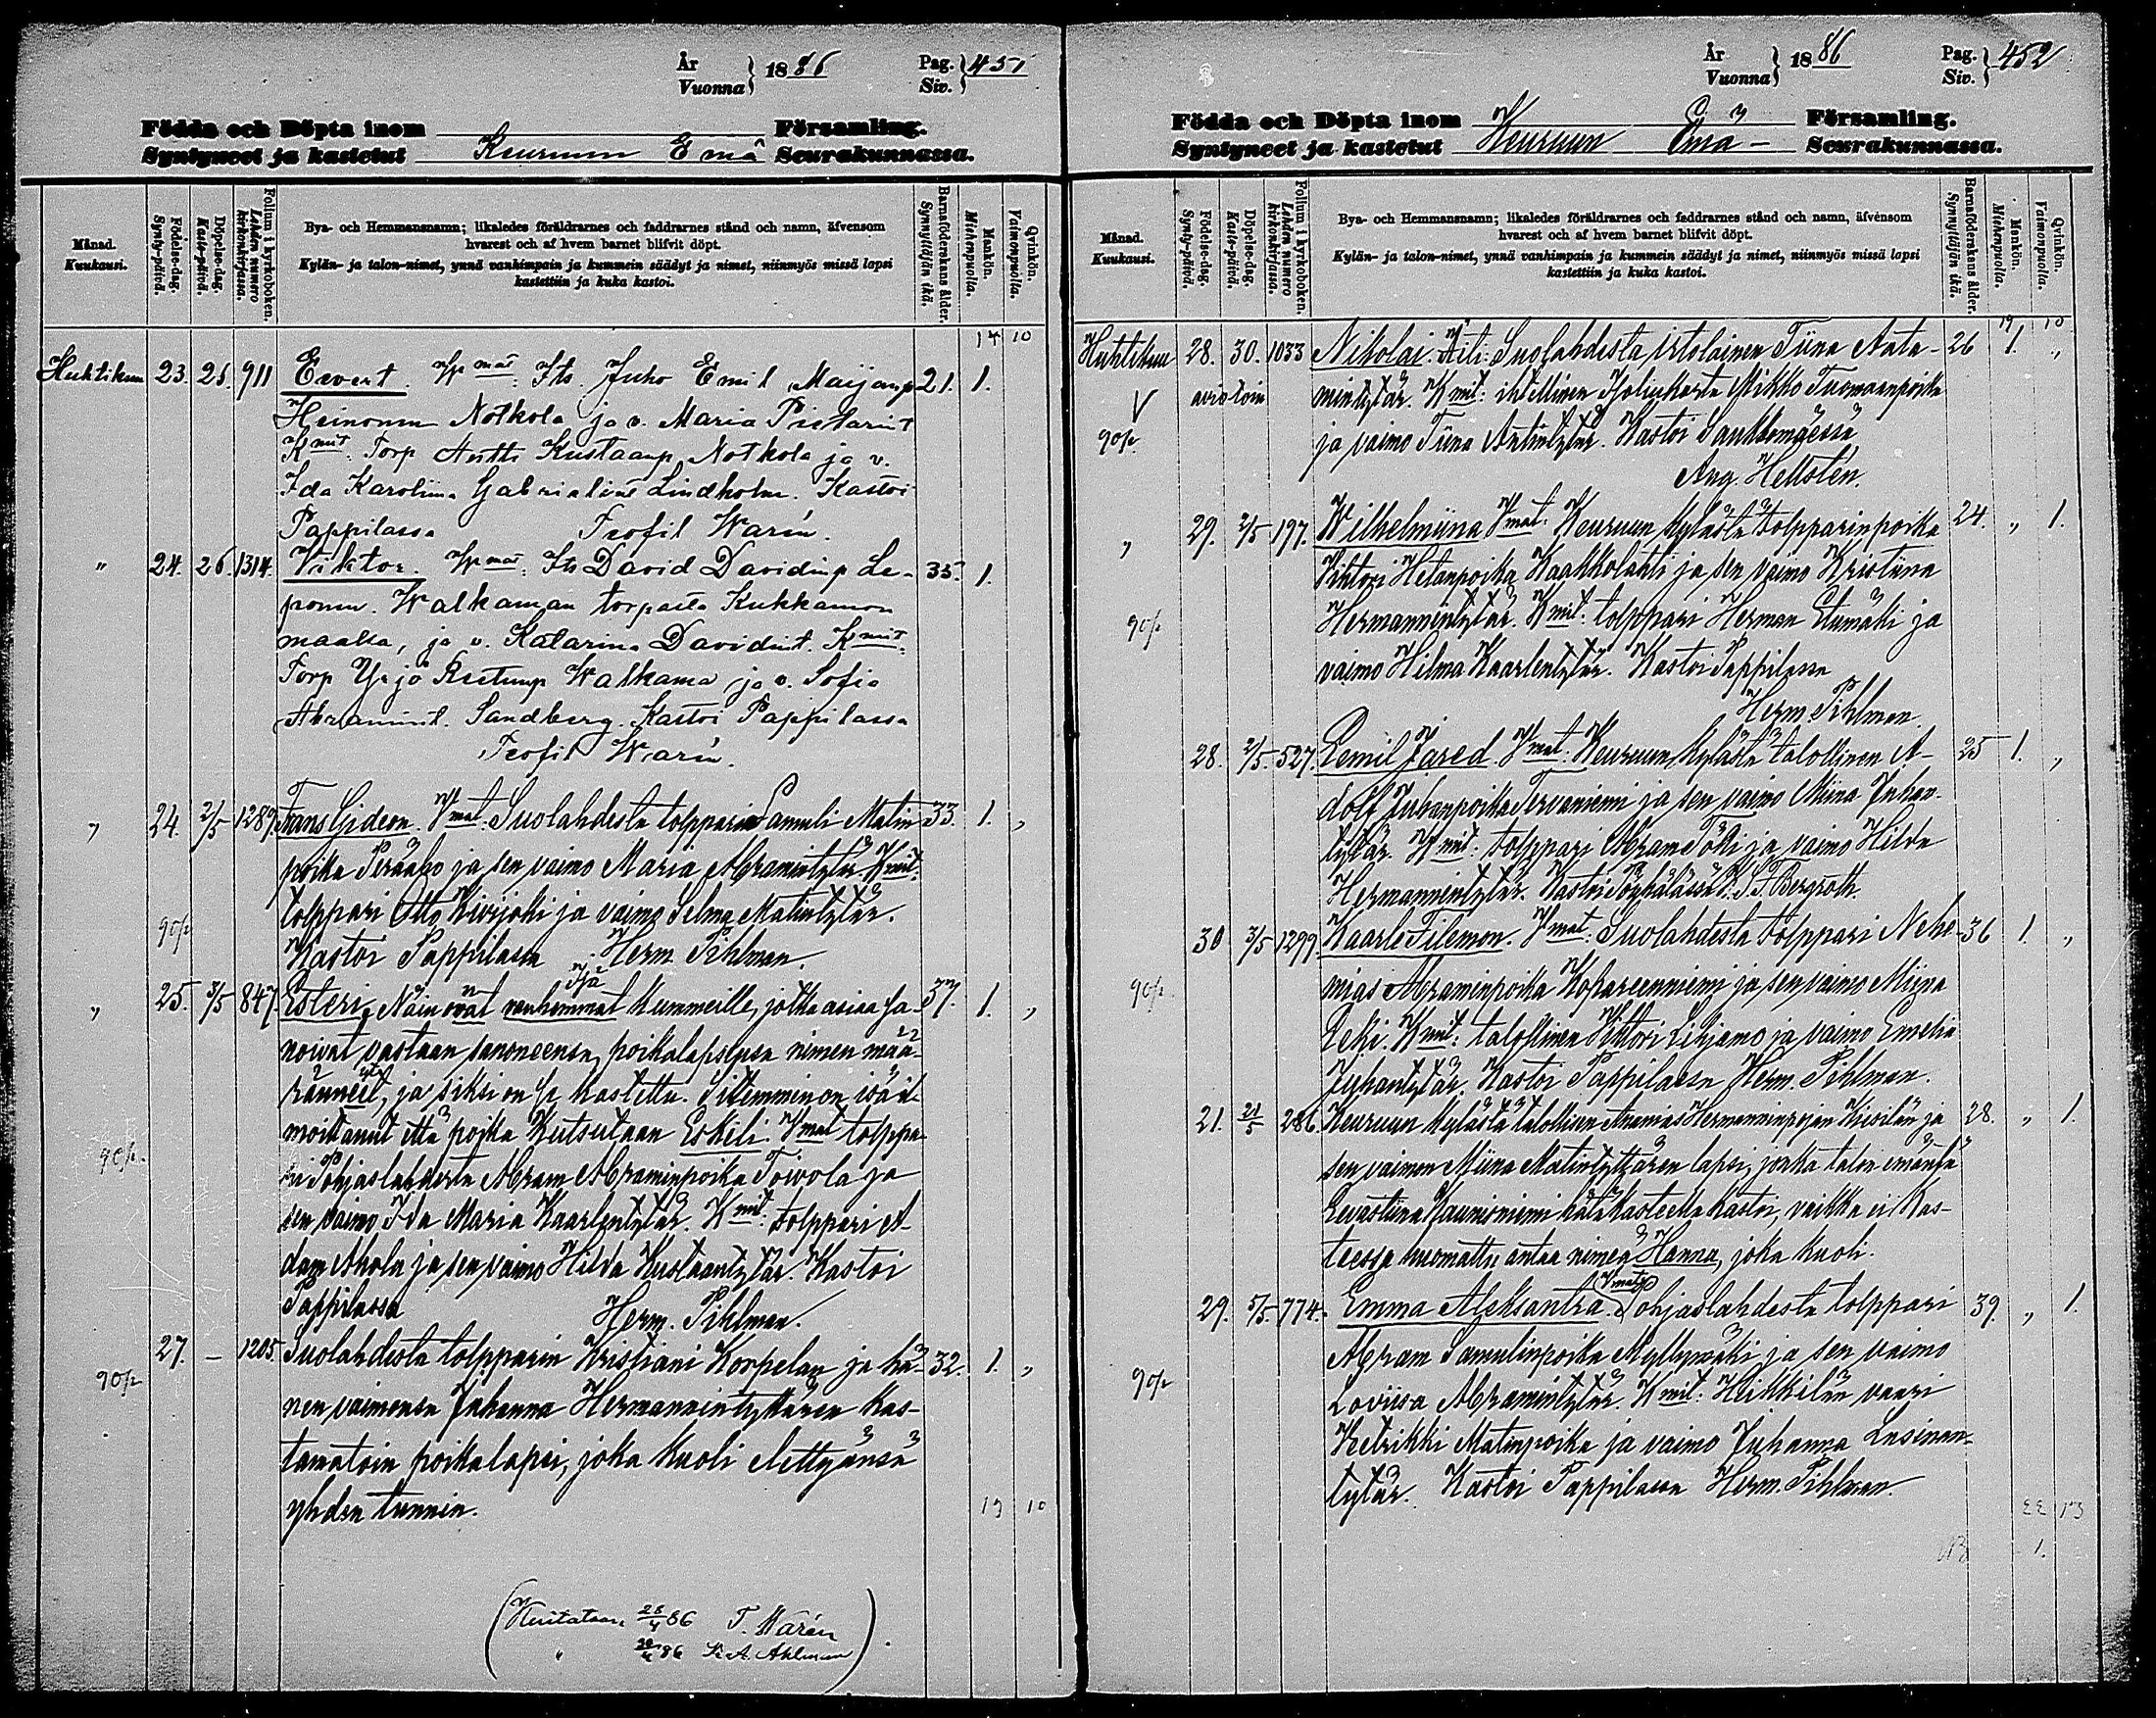 År
Vuonna } 1886 Pag. Siv. } 451
Födda och Döpta inom Församling.
Syntyneet ja kastetut Keuruun Emä Seurakunnassa.
Månad.
Kuukausi.
Födelse-dag.
Synty-päivä.
Döpelse-dag.
Kaste-päivä.
Folium i kyrkoboken.
Lehden numero kirkonkirjassa.
Bya- och Hemmansnamn; likaledes föräldrarnes och faddrarnes stånd och namn, äfvensom
hvarest och af hvem barnet blifvit döpt.
Kylän- ja talon-nimet, ynnä vanhimpain ja kummein säädyt ja nimet, niinmyös missä lapsi
kastettiin ja kuka kastoi.
Barnaföderskans ålder.
Synnyttäjän ikä.
Mankön.
Miehenpuolta.
Qvinkön.
Vaimonpuolta.
14 10
Huhtikuu 23. 25. 911 Evert. Juho Emil Maijanp 21. 1.
Heinonen Notkola ja v. Maria
Kmit. Torp Antti Kustaanp Notkola ja v.
Ida Karolina Gabrielint Lindholm. Kastoi
Pappilassa Teofil Warén.
" 24. 26. 1314. Viktor. Its David Davidinp Le- 35. 1.
ponen. Walkaman torpasta Kukkamon
maalla, ja v. Katarina Davidint. Kmit.
Torp Yrjö Walkama ja v. Sofia
Abramint. Sandberg. Kastoi Pappilassa
Teofil Warén.
" 24. 2/5 1289. Frans Gideon. Vmat. Suolahdesta tolppari Samuli Matin- 33. 1. "
poika Peräaho ja sen vaimo Maria Abramintytär. Kmit.
tolppari Otto Kivijoki ja vaimo Selma Matintytär.
90p
Kastoi Pappilassa Herm. Pihlman.
" 25. 3/5 847. Esteri. Näin ovat vanhemmat Kummeille, jotka asiaa sa- 37. 1. "
noivat vastaan sanoneensa, poikalapsensa nimen mää-
ränneet, ja siksi on se kastettu. Sittemmin on isä il-
moittanut että poika Kutsutaan Eskeli. Vmat tolppa-
90p.
ri Pohjaslahdesta Abram Abraminpoika Toivola ja
sen vaimo Ida Maria Kaarlentytär. Kmit. tolppari A-
dam Ahola ja sen vaimo Hilda Kustaantytär. Kastoi
Pappilassa Herm. Pihlman.
27. – 1205. Suolahdesta tolpparin Kristiani Korpelan ja hä- 32. 1. "
90p
nen vaimonsa Johanna Hermannintyttären Kas-
tamatoin poikalapsi, joka Kuoli elettyänsä
yhden tunnin.
19 10
28/4 86 T. Warén
" 86 Ahlman
År
Vuonna } 1886 Pag. Siv. } 452
Födda och Döpta inom Församling.
Syntyneet ja kastetut Keuruun Emä- Seurakunnassa.
Månad.
Kuukausi.
Födelse-dag.
Synty-päivä.
Döpelse-dag.
Kaste-päivä.
Folium i kyrkoboken.
Lehden numero kirkonkirjassa.
Bya- och Hemmansnamn; likaledes föräldrarnes och faddrarnes stånd och namn, äfvensom
hvarest och af hvem barnet blifvit döpt.
Kylän- ja talon-nimet, ynnä vanhimpain ja kummein säädyt ja nimet, niinmyös missä lapsi
kastettiin ja kuka kastoi.
Barnaföderskans ålder.
Synnyttäjän ikä.
Mankön.
Miehenpuolta.
Qvinkön.
Vaimonpuolta.
19 10
Huhtikuu 28. 30. 1033 Nikolai. Äiti: Suolahdesta irtolainen Tiina Aata- 26 1. "
V aviotoin mintytär. Kmit: itsellinen Mikko Tuomaanpoika
90p. ja vaimo Tiina Antintytär. Kastoi
Aug. Hellstén.
" 29. 2/5 197. Wilhelmiina Vmat. Keuruun Kylästä tolpparinpoika 24. " 1.
Vihtori Kaakkolahti ja sen vaimo Kristiina
90p
Hermannintytär. Kmit: tolppari Herman Etumäki ja
vaimo Hilma Kaarlentytär. Kastoi Pappilassa
Herm. Pihlman.
28. 2/5. 527. Eemil Jared. Vmat. Keuruun Kylästä talollinen A- 25 1. "
dolf Juhanpoika Tervaniemi ja sen vaimo Miina Juhan-
tytär. Kmit: tolppari Abram ja vaimo Hilda
Hermannintytär. Kastoi K. J. Bergroth.
30 3/5 1299. Kaarle Filemon. Vmat. Suolahdesta tolppari Nehe- 36 1. "
90p
mias Abraminpoika ja sen vaimo Miina
Kmit: talollinen Vihtori ja vaimo Emelia
Juhantytär. Kastoi Pappilassa Herm. Pihlman.
21. 21/5 286. Keuruun Kylästä talollisen Ananias Hermanninpojan ja 28. " 1.
sen vaimon Miina Matintyttären lapsi, jonka talon emäntä
Eevastiina hätäkasteella kastoi, vaikka ei Kas-
teessa huomattu antaa nimeä Hanna, joka kuoli.
29. 5/5. 774. Emma Aleksantra. Vmat. Pohjaslahdesta tolppari 39. " 1.
Abram Samulinpoika Myllymäki ja sen vaimo
90p
Loviisa Abramintytär. Kmit: Heikkilän vaari
Hetrikki Matinpoika ja vaimo Juhanna
tytär. Kastoi Pappilassa Herm. Pihlman.
22 13
1.